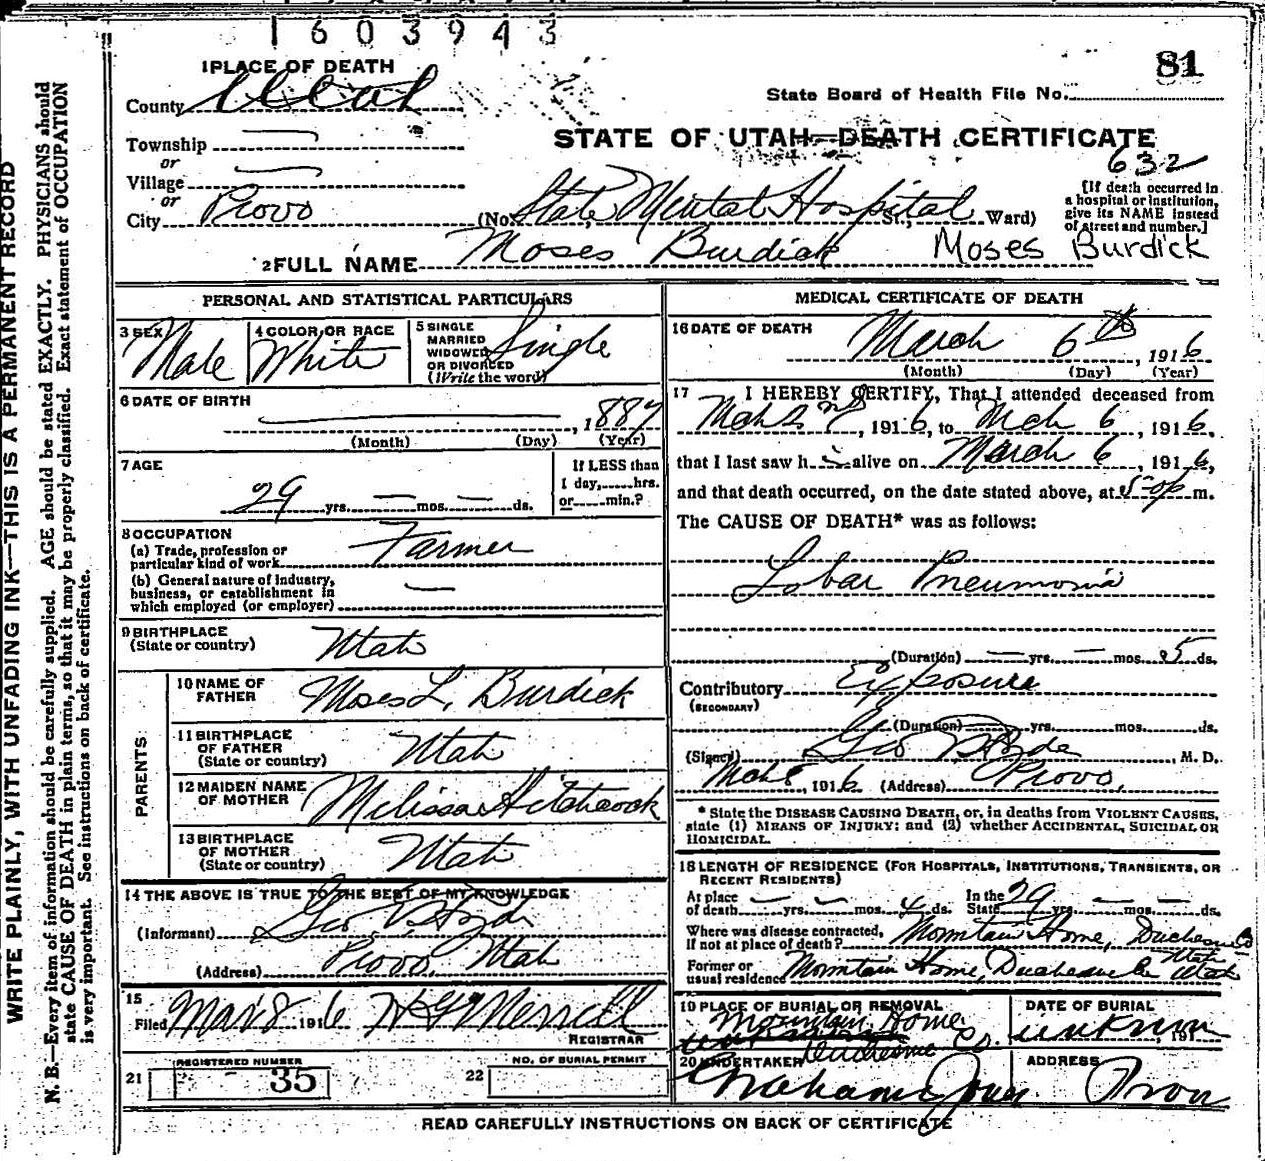 1603943
81
1 PLACE OF DEATH
County Utah
State Board of Health File No.
STATE OF UTAH—DEATH CERTIFICATE
Township —
or
Village —
or
City Provo (No. State Mental Hospital St., Ward)
632
[If death occurred in
a hospital or institution,
give its NAME instead
of street and number.]
2 FULL NAME Moses Burdick Moses Burdick
PERSONAL AND STATISTICAL PARTICULARS
3 SEX Male
4 COLOR OR RACE White
5 SINGLE
MARRIED
WIDOWED
OR DIVORCED
(Write the word) Single
6 DATE OF BIRTH
—, 1887
(Month) (Day) (Year)
7 AGE
29 yrs. — mos. — ds.
If LESS than
1 day, hrs.
or min.?
8 OCCUPATION
(a) Trade, profession or
particular kind of work Farmer
(b) General nature of industry,
business, or establishment in
which employed (or employer) —
9 BIRTHPLACE
(State or country) Utah
PARENTS
10 NAME OF
FATHER Moses L. Burdick
11 BIRTHPLACE
OF FATHER
(State or country) Utah
12 MAIDEN NAME
OF MOTHER Melissa Hitchcock
13 BIRTHPLACE
OF MOTHER
(State or country) Utah
14 THE ABOVE IS TRUE TO THE BEST OF MY KNOWLEDGE
(Informant) Geo
(Address) Provo, Utah
15
Filed Mar 8 1916 Merrill
REGISTRAR
21 REGISTERED NUMBER
35
22 NO. OF BURIAL PERMIT
MEDICAL CERTIFICATE OF DEATH
16 DATE OF DEATH
March 6th, 1916
(Month) (Day) (Year)
17 I HEREBY CERTIFY, That I attended deceased from
Mch 2nd, 1916, to Mch 6, 1916,
that I last saw h i alive on March 6, 1916,
and that death occurred, on the date stated above, at 5 P m.
The CAUSE OF DEATH* was as follows:
Lobar Pneumonia
(Duration) — yrs. — mos. 5 ds.
Contributory Exposure
(SECONDARY)
(Duration) yrs. mos. ds.
(Signed) Geo , M. D.
Mch 8, 1916 (Address) Provo,
* State the DISEASE CAUSING DEATH, or, in deaths from VIOLENT CAUSES,
state (1) MEANS OF INJURY; and (2) whether ACCIDENTAL, SUICIDAL OR
HOMICIDAL.
18 LENGTH OF RESIDENCE (FOR HOSPITALS, INSTITUTIONS, TRANSIENTS, OR
RECENT RESIDENTS)
At place
of death — yrs. — mos. 4 ds.
In the
State 29 yrs. — mos. — ds.
Where was disease contracted,
if not at place of death? Mountain Home, Duchesne Co Utah
Former or
usual residence Mountain Home, Duchesne Co Utah
19 PLACE OF BURIAL OR REMOVAL
Mountain Home
Duchesne Co.
DATE OF BURIAL
unknown, 191
20 UNDERTAKER
ADDRESS
Provo
READ CAREFULLY INSTRUCTIONS ON BACK OF CERTIFICATE
WRITE PLAINLY, WITH UNFADING INK—THIS IS A PERMANENT RECORD
N. B.—Every item of information should be carefully supplied. AGE should be stated EXACTLY. PHYSICIANS should
state CAUSE OF DEATH in plain terms, so that it may be properly classified. Exact statement of OCCUPATION
is very important. See instructions on back of certificate.